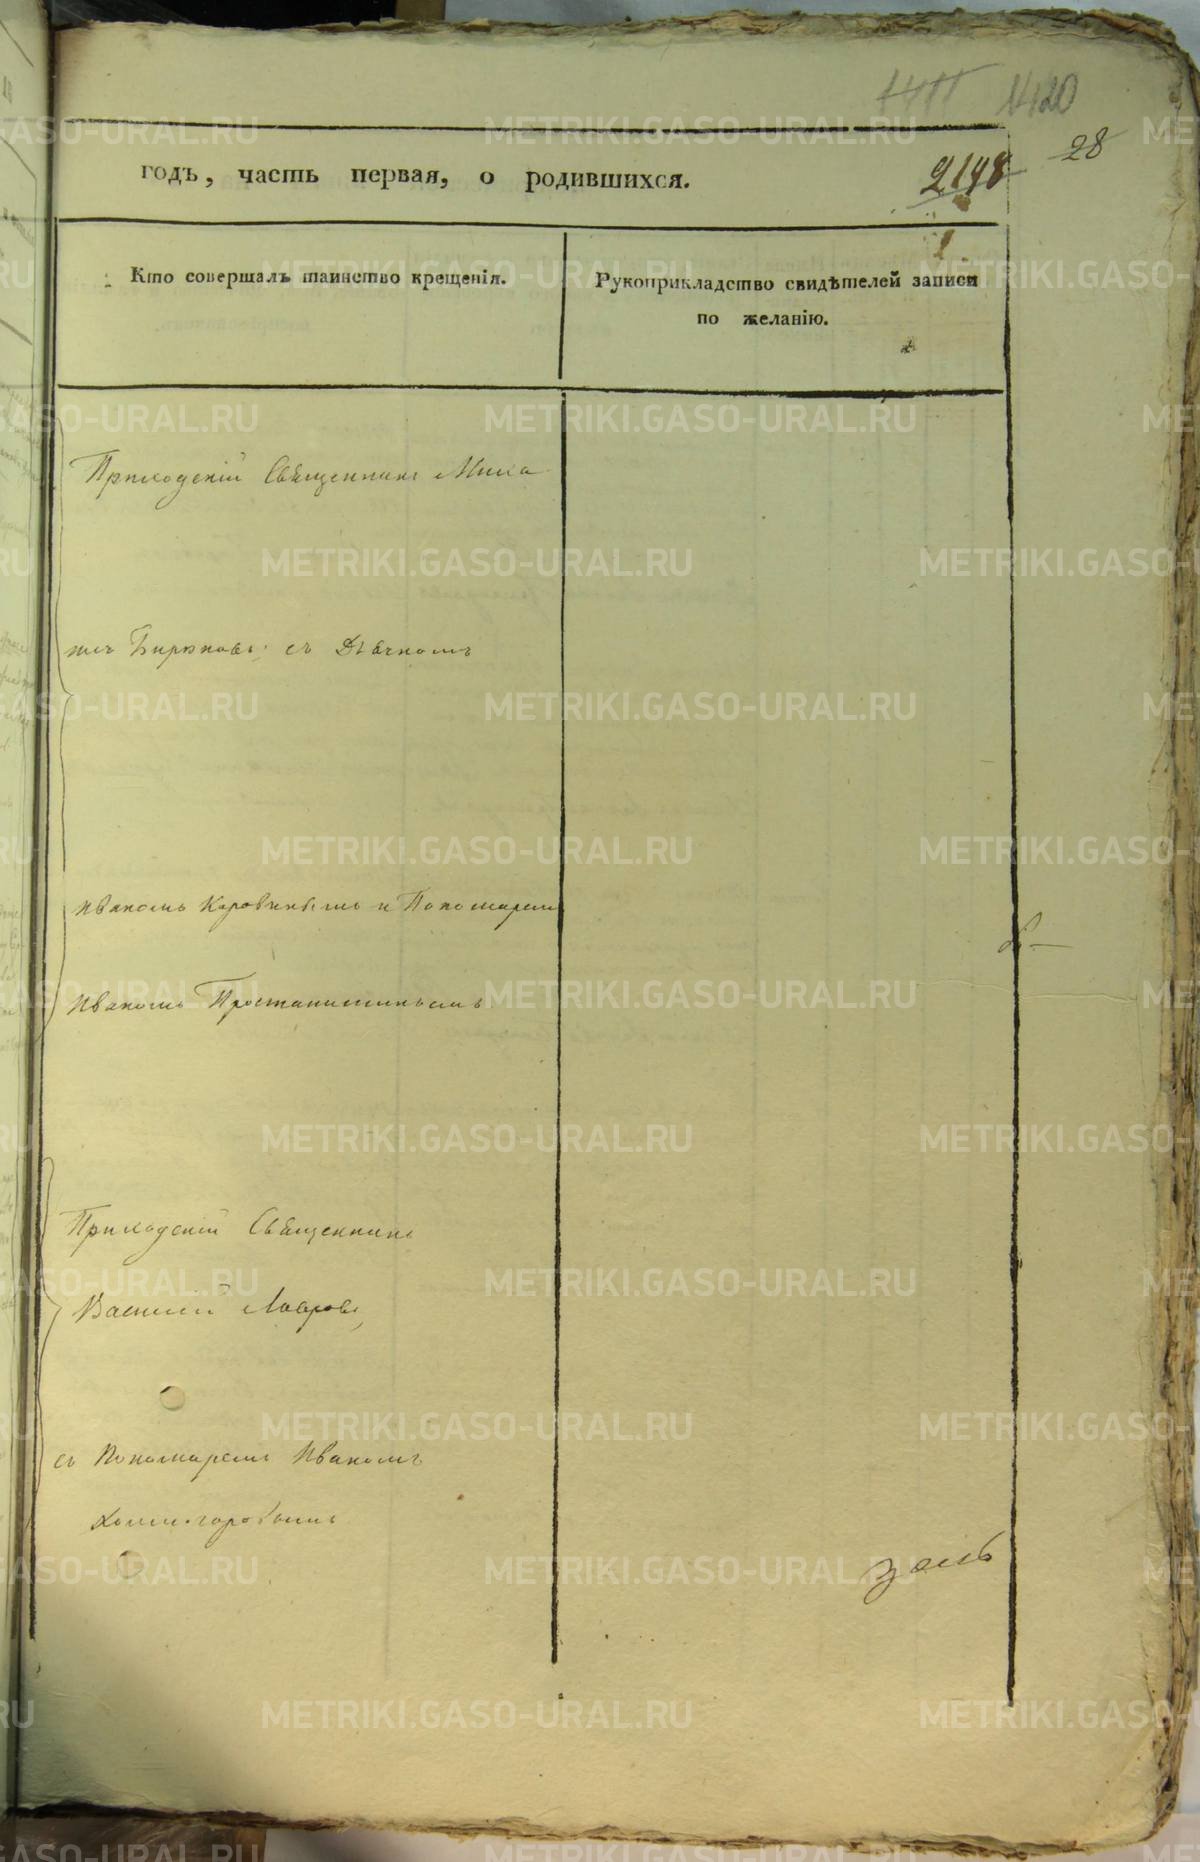 1420
28
годъ, часть первая, о родившихся.
2198
Кто совершалъ таинство крещенія.
Рукоприкладство свидѣтелей записи
по желанію.
Приходскій Священникъ Миха
илъ Бирюковъ съ Дьячкомъ
Иваномъ Коровинымъ и Пономаремъ
Иваномъ
Приходскій Священникъ
Василій Лавровъ,
съ Пономаремъ Иваномъ
Холмогоровымъ
METRIKI.GASO-URAL.RU